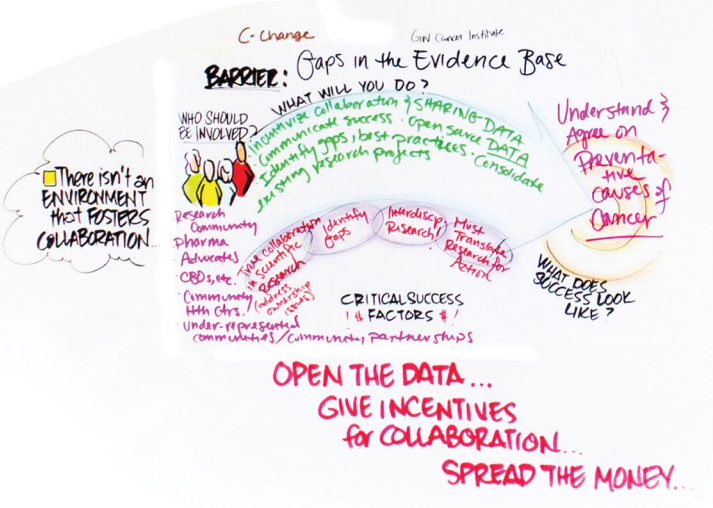 C-Change
GW Cancer Institute
BARRIER: Gaps in the Evidence Base
WHAT WILL YOU DO?
WHO SHOULD
BE INVOLVED?
Incentivize collaboration & SHARING DATA
• Communicate success • Open source DATA
• Identify gaps, best practices • Consolidate
existing research projects
Understand &
Agree on
Preventa-
tive
causes of
Cancer
There isn't an
ENVIRONMENT
that FOSTERS
COLLABORATION...
Research
Community
• Pharma
• Advocates
• CBOs, etc.
• Community
Hlth Ctrs.
• Under-represented
communities/community partnerships
True collaboration
in Scientific
Research
(address
ownership
issues)
Identify
Gaps
Interdiscip.
Research!
Must
Translate
Research for
Action
CRITICAL SUCCESS
! # FACTORS # !
WHAT DOES
SUCCESS LOOK
LIKE?
OPEN THE DATA...
GIVE INCENTIVES
for COLLABORATION...
SPREAD THE MONEY...